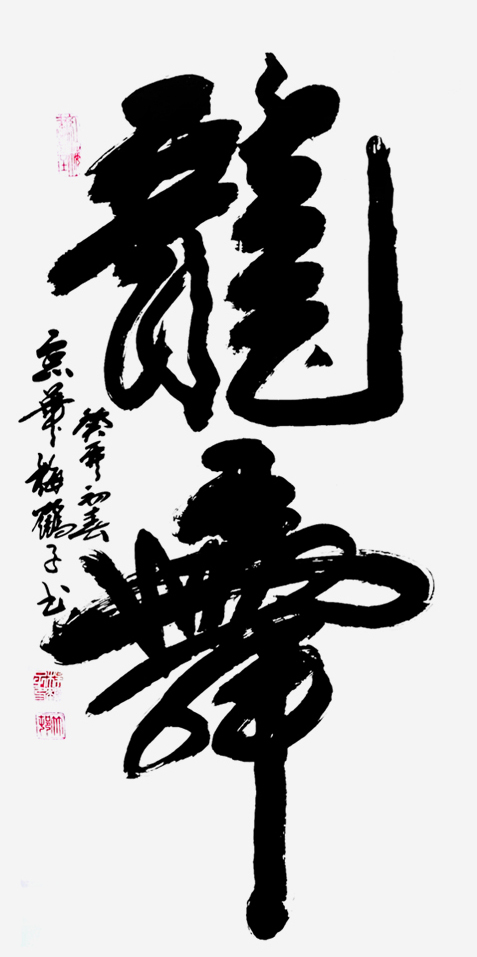 龍舞
癸卯初春
京華梅鶴子书